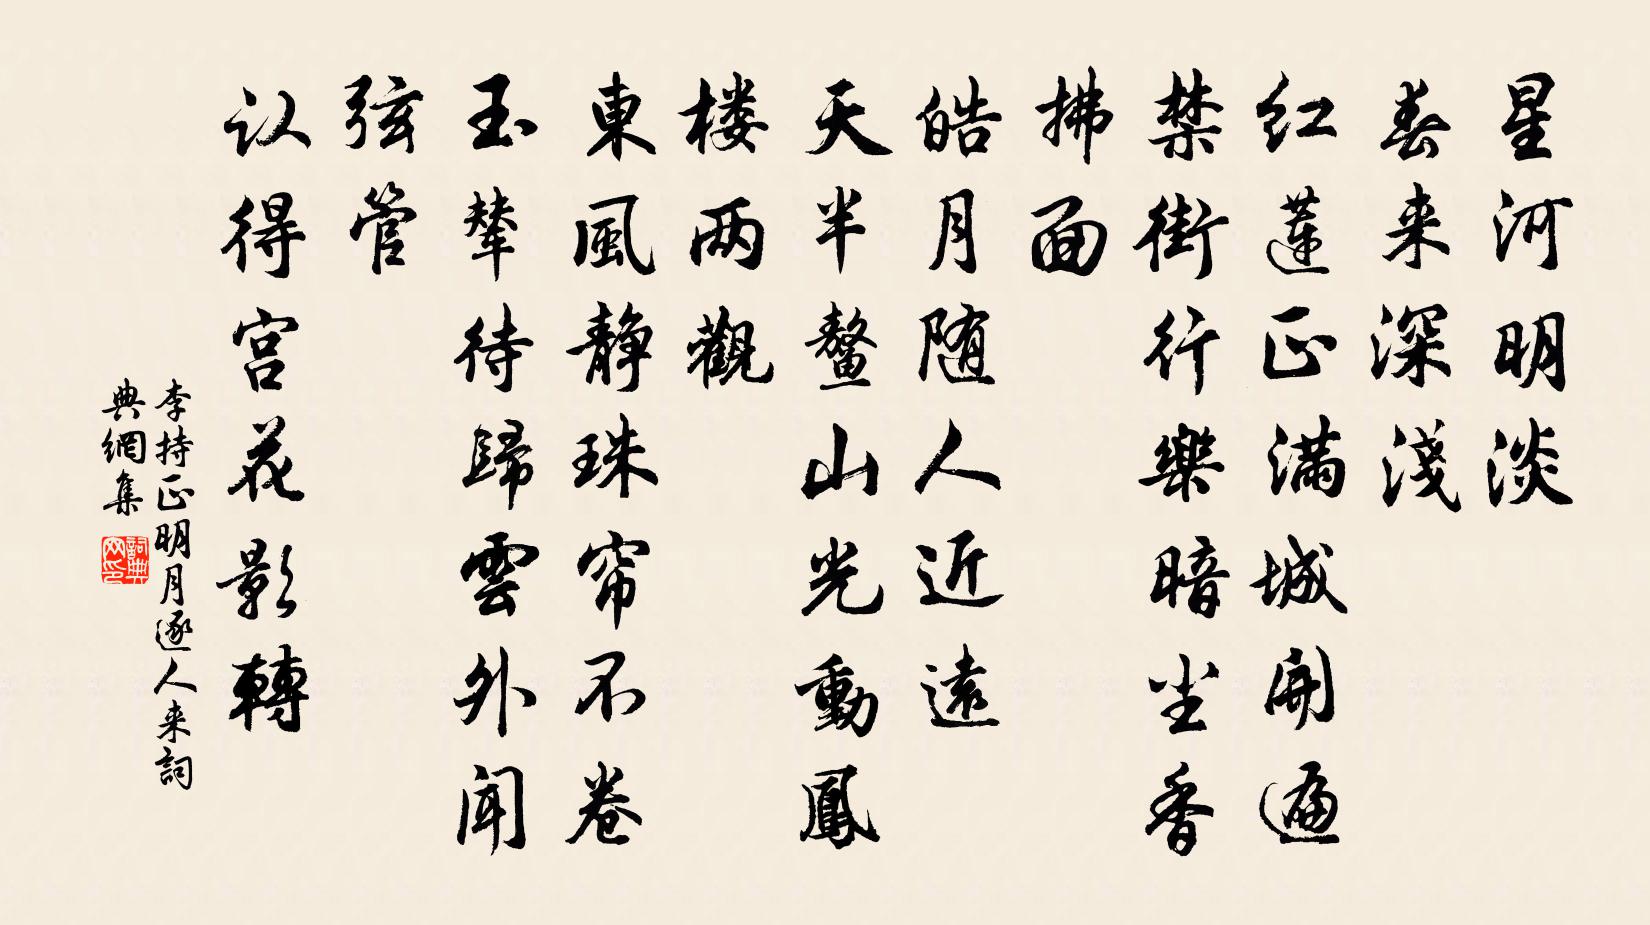 星河明淡
春来深淺
红蓮正满城開遍
禁街行樂暗尘香
拂面
皓月随人近遠
天半鳌山光動鳳
楼两觀
東風静珠帘不卷
玉輦待歸雲外闻
弦管
认得宫花影轉
李持正明月逐人来詞
典網集
詞典网印